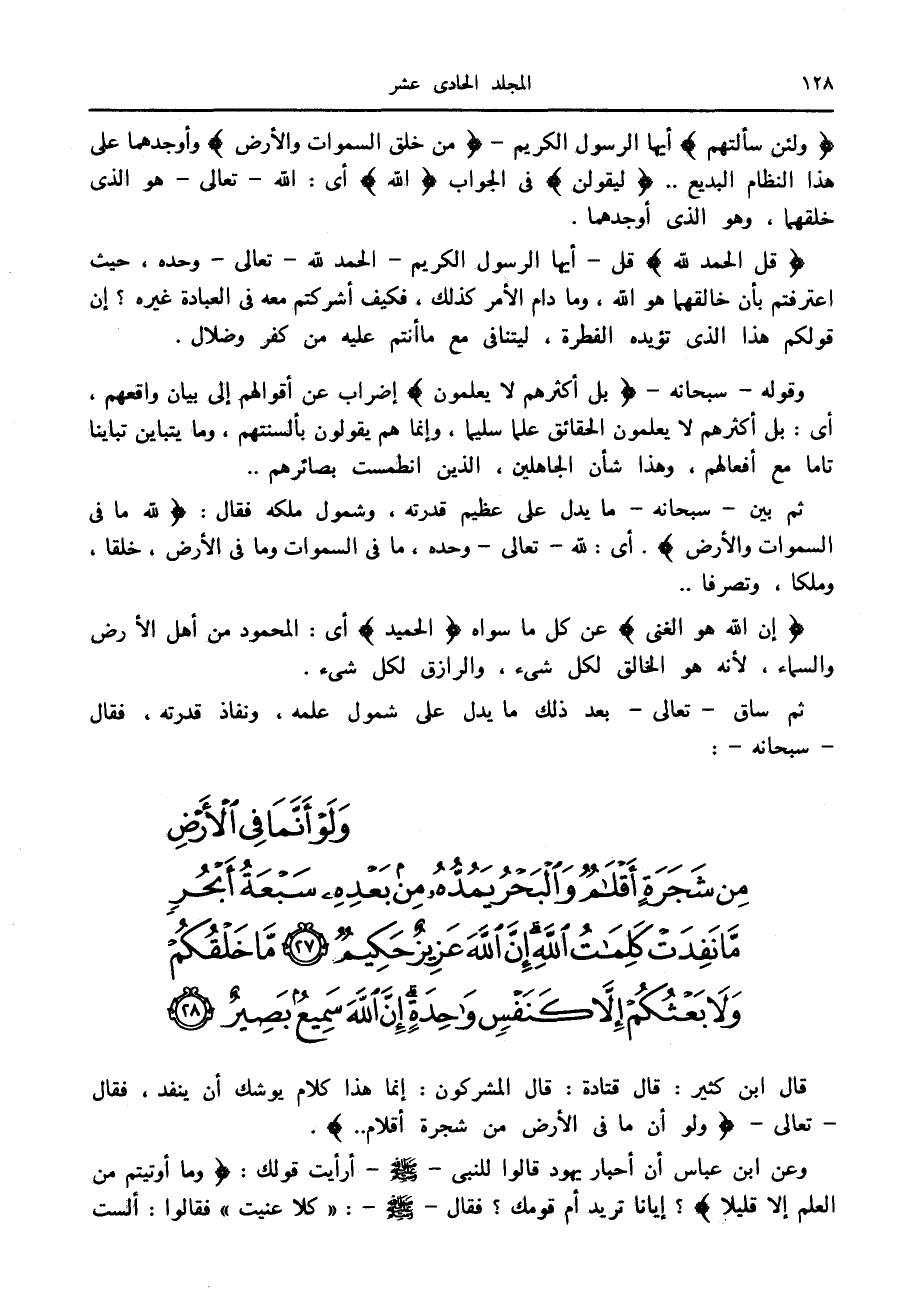 ١٢٨ المجلد الحادى عشر
﴿ ولئن سألتهم ﴾ أيها الرسول الكريم – ﴿ من خلق السموات والأرض ﴾ وأوجدهما على
هذا النظام البديع .. ﴿ ليقولن ﴾ فى الجواب ﴿ الله ﴾ أى : الله – تعالى – هو الذى
خلقهما ، وهو الذى أوجدهما .
﴿ قل الحمد لله ﴾ قل – أيها الرسول الكريم – الحمد لله – تعالى – وحده ، حيث
اعترفتم بأن خالقهما هو الله ، وما دام الأمر كذلك ، فكيف أشركتم معه فى العبادة غيره ؟ إن
قولكم هذا الذى تؤيده الفطرة ، ليتنافى مع ماأنتم عليه من كفر وضلال .
وقوله – سبحانه – ﴿ بل أكثرهم لا يعلمون ﴾ إضراب عن أقوالهم إلى بيان واقعهم ،
أى : بل أكثرهم لا يعلمون الحقائق علما سليما ، وإنما هم يقولون بألسنتهم ، وما يتباين تباينا
تاما مع أفعالهم ، وهذا شأن الجاهلين ، الذين انطمست بصائرهم ..
ثم بين – سبحانه – ما يدل على عظيم قدرته ، وشمول ملكه فقال : ﴿ لله ما فى
السموات والأرض ﴾ . أى : لله – تعالى – وحده ، ما فى السموات وما فى الأرض ، خلقا ،
وملكا ، وتصرفا ..
﴿ إن الله هو الغنى ﴾ عن كل ما سواه ﴿ الحميد ﴾ أى : المحمود من أهل الأ رض
والسماء ، لأنه هو الخالق لكل شىء ، والرازق لكل شىء .
ثم ساق – تعالى – بعد ذلك ما يدل على شمول علمه ، ونفاذ قدرته ، فقال
– سبحانه – :
وَلَوْ أَنَّمَا فِي ٱلْأَرْضِ
مِن شَجَرَةٍ أَقْلَٰمٌ وَٱلْبَحْرُ يَمُدُّهُۥ مِنۢ بَعْدِهِۦ سَبْعَةُ أَبْحُرٍ
مَّا نَفِدَتْ كَلِمَٰتُ ٱللَّهِۗ إِنَّ ٱللَّهَ عَزِيزٌ حَكِيمٌ ٢٧ مَّا خَلْقُكُمْ
وَلَا بَعْثُكُمْ إِلَّا كَنَفْسٍ وَٰحِدَةٍۗ إِنَّ ٱللَّهَ سَمِيعٌۢ بَصِيرٌ ٢٨
قال ابن كثير : قال قتادة : قال المشركون : إنما هذا كلام يوشك أن ينفد ، فقال
– تعالى – ﴿ ولو أن ما فى الأرض من شجرة أقلام.. ﴾ .
وعن ابن عباس أن أحبار يهود قالوا للنبى – ﷺ – أرأيت قولك : ﴿ وما أوتيتم من
العلم إلا قليلا ﴾ ؟ إيانا تريد أم قومك ؟ فقال – ﷺ – : « كلا عنيت » فقالوا : ألست